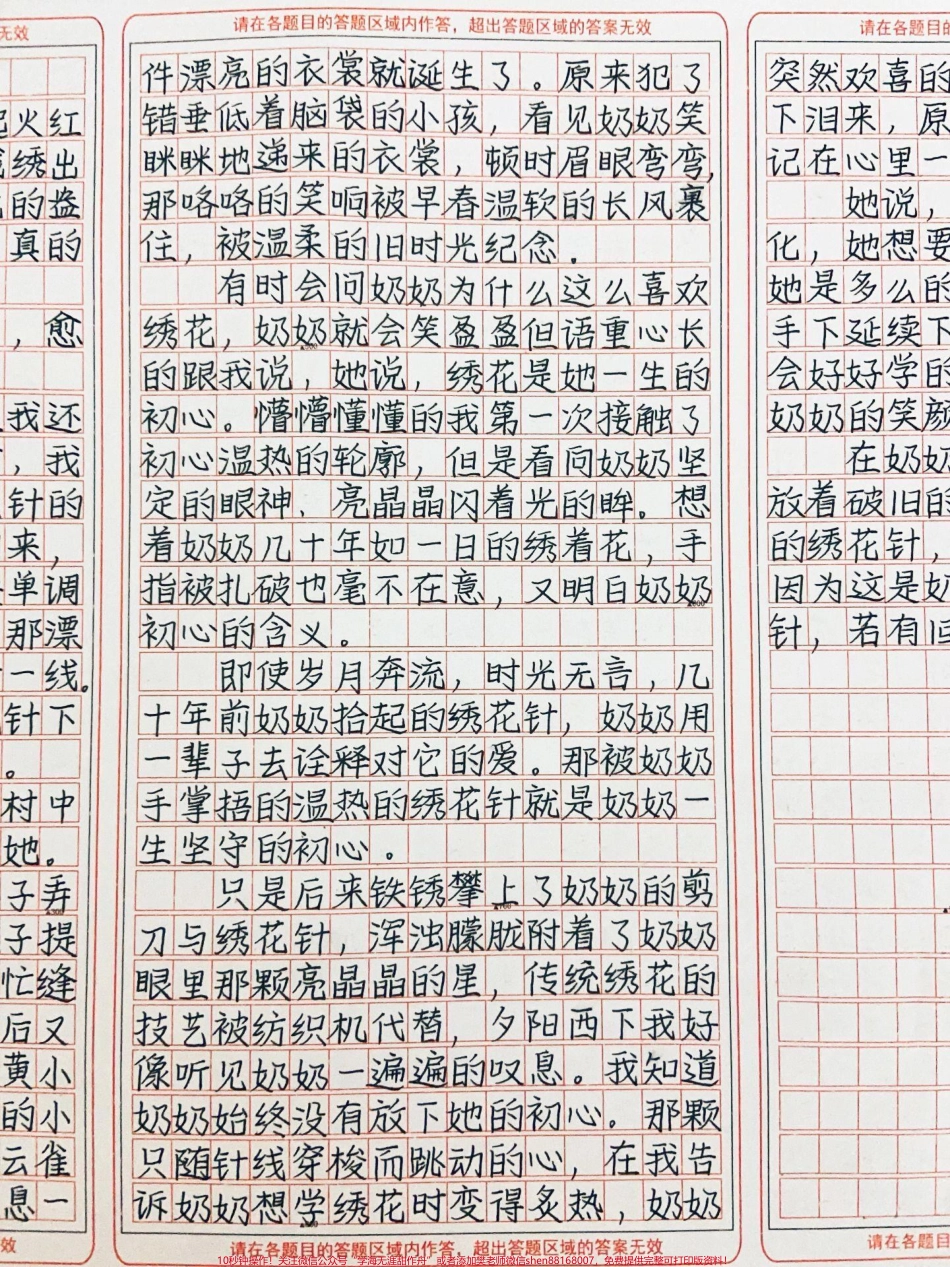 无效
起火红
绣出
的盎
真的
，愈
我还
，我
针的
来，
单调
那漂
一线。
针下
。
村中
她。
子弄
子提
忙缝
后又
黄小
的小
云雀
息一
效
请在各题目的答题区域内作答，超出答题区域的答案无效
件漂亮的衣裳就诞生了。原来犯了
错垂低着脑袋的小孩，看见奶奶笑
眯眯地递来的衣裳，顿时眉眼弯弯，
那咯咯的笑响被早春温软的长风裹
住，被温柔的旧时光纪念.
有时会问奶奶为什么这么喜欢
绣花，奶奶就会笑盈盈但语重心长
的跟我说，她说，绣花是她一生的
初心。懵懵懂懂的我第一次接触了
初心温热的轮廓，但是看向奶奶坚
定的眼神、亮晶晶闪着光的眸。想
着奶奶几十年如一日的绣着花，手
指被扎破也毫不在意，又明白奶奶
初心的含义。
即使岁月奔流，时光无言，几
十年前奶奶拾起的绣花针，奶奶用
一辈子去诠释对它的爱。那被奶奶
手掌捂的温热的绣花针就是奶奶一
生坚守的初心。
只是后来铁锈攀上了奶奶的剪
刀与绣花针，浑浊朦胧附着了奶奶
眼里那颗亮晶晶的星，传统绣花的
技艺被纺织机代替，夕阳西下我好
像听见奶奶一遍遍的叹息。我知道
奶奶始终没有放下她的初心。那颗
只随针线穿梭而跳动的心，在我告
诉奶奶想学绣花时变得炙热，奶奶
请在各题目的答题区域内作答，超出答题区域的答案无效
请在各题目的
突然欢喜的
下泪来，原
记在心里一
她说，
化，她想要
她是多么的
手下延续下
会好好学的
奶奶的笑颜
在奶奶
放着破旧的
的绣花针，
因为这是奶
针，若有旧
请在各题目
10秒钟操作！关注微信公众号“学海无涯甜作舟”或者添加樊老师微信shen88168007，免费提供完整可打印版资料！